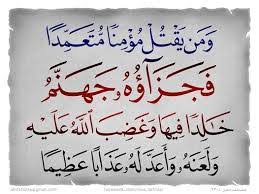 وَمَن يَقْتُلْ مُؤْمِنًا مُّتَعَمِّدًا
فَجَزَآؤُهُۥ جَهَنَّمُ
خَٰلِدًا فِيهَا وَغَضِبَ ٱللَّهُ عَلَيْهِ
وَلَعَنَهُۥ وَأَعَدَّ لَهُۥ عَذَابًا عَظِيمًا